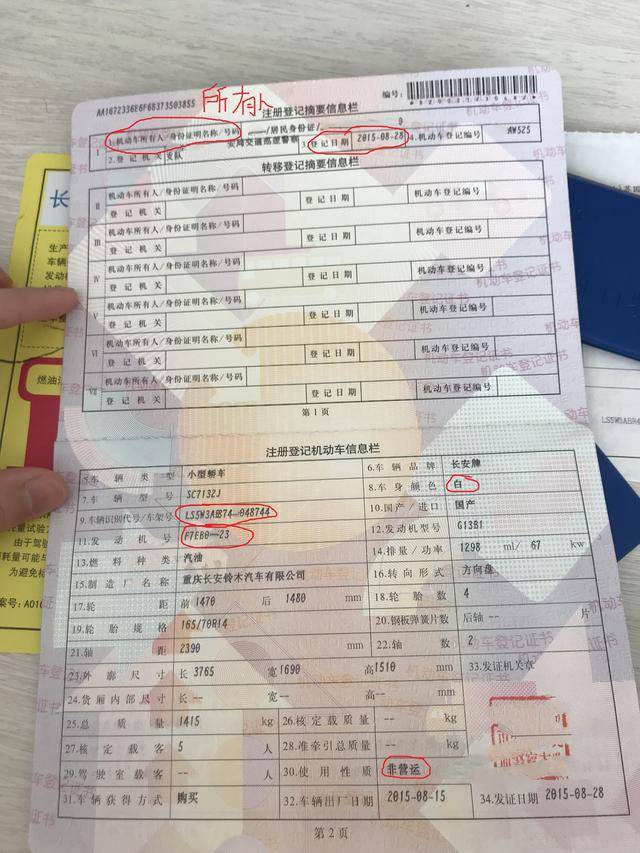 所有人
AA1672336E6F683735038S5
注册登记摘要信息栏
编号:
Ⅰ 1.机动车所有人/身份证明名称/号码 /居民身份证/
2.登记机关 安局交通巡逻警察支队 3.登记日期 2015-08-28 4.机动车登记编号 AW525
转移登记摘要信息栏
Ⅱ 机动车所有人/身份证明名称/号码
登记机关 登记日期 机动车登记编号
Ⅲ 机动车所有人/身份证明名称/号码
登记机关 登记日期 机动车登记编号
Ⅳ 机动车所有人/身份证明名称/号码
登记机关 登记日期 机动车登记编号
Ⅴ 机动车所有人/身份证明名称/号码
登记机关 登记日期 机动车登记编号
Ⅵ 机动车所有人/身份证明名称/号码
登记机关 登记日期 机动车登记编号
Ⅶ 机动车所有人/身份证明名称/号码
登记机关 登记日期 机动车登记编号
第1页
注册登记机动车信息栏
5.车辆类型 小型轿车 6.车辆品牌 长安牌
7.车辆型号 SC7132J 8.车身颜色 白
9.车辆识别代号/车架号 LS5W3ABB74-048744 10.国产/进口 国产
11.发动机号 F7EB0-23 12.发动机型号 G13B1
13.燃料种类 汽油 14.排量/功率 1298 ml/ 67 kw
15.制造厂名称 重庆长安铃木汽车有限公司 16.转向形式 方向盘
17.轮距 前 1470 后 1480 mm 18.轮胎数 4
19.轮胎规格 165/70R14 20.钢板弹簧片数 后轴 -- 片
21.轴距 2390 mm 22.轴数 2
23.外廓尺寸 长 3765 宽 1690 高 1510 mm 33.发证机关章
24.货厢内部尺寸 长 -- 宽 -- 高 -- mm
25.总质量 1415 kg 26.核定载质量 -- kg
27.核定载客 5 人 28.准牵引总质量 -- kg
29.驾驶室载客 -- 人 30.使用性质 非营运
31.车辆获得方式 购买 32.车辆出厂日期 2015-08-15 34.发证日期 2015-08-28
第2页
长
生产
车辆
发动机
燃油消